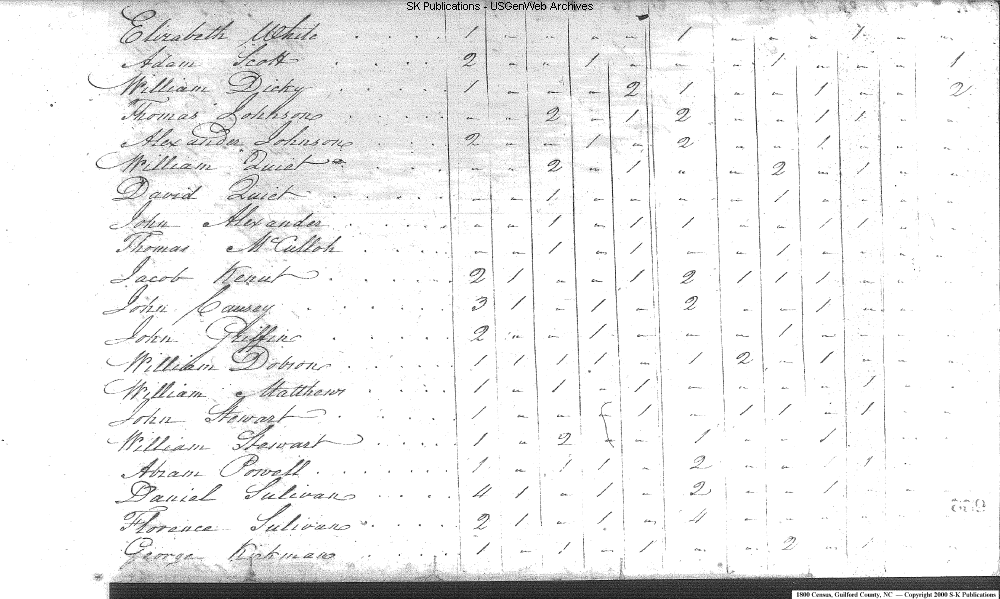 SK Publications - USGenWeb Archives
Elizabeth White . . . . 1 - - - - 1 - - - 1 - -
Adam Scott . . . . 2 - - 1 - - - 1 - - - 1
William Dicky . . . . 1 - - - 2 1 - - 1 - - 2
Thomas Johnson . . . . - - 2 - 1 2 - - 1 1 - -
Alexander Johnson . . . . 2 - - 1 - 2 - - 1 - - -
William Quiet . . . . - - 2 - 1 - - 2 - 1 - -
David Quiet . . . . - - 1 - - - - 1 - - - -
John Alexander . . . . - - 1 - 1 1 - - 1 - - -
Thomas McCulloh . . . . - - 1 - 1 - - 1 - - - -
Jacob . . . . 2 1 - - 1 2 1 1 1 - - -
John Causey . . . . 3 1 - 1 - 2 - - 1 - - -
John Griffin . . . . 2 - - 1 - - - 1 - - - -
William Dobson . . . . 1 1 1 1 - 1 2 - 1 - - -
William Matthews . . . . 1 - 1 - 1 - - - - 1 - -
John Stewart . . . . 1 - - - 1 - 1 1 - 1 - -
William Stewart . . . . 1 - 2 - - 1 - - 1 - - -
Abram Powell . . . . 1 - 1 1 - 2 - - 1 1 - -
Daniel Sulivan . . . . 4 1 - 1 - 2 - - 1 - - -
Florence Sulivan . . . . 2 1 - 1 - 4 - - - - - -
George Kirkman . . . . 1 - 1 - 1 - - 2 - 1 - -
1800 Census, Guilford County, NC — Copyright 2000 S-K Publications